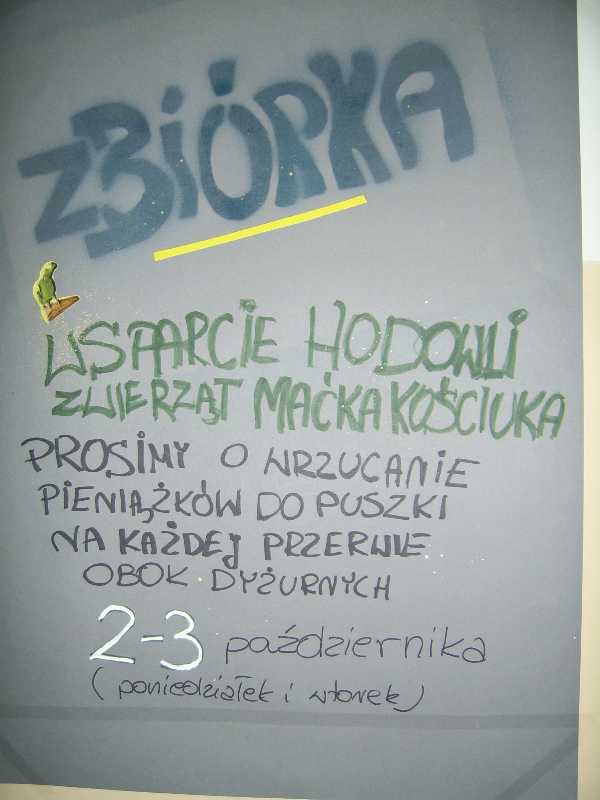 ZBIÓRKA
WSPARCIE HODOWLI
ZWIERZĄT MAĆKA KOŚCIUKA
PROSIMY O WRZUCANIE
PIENIĄŻKÓW DO PUSZKI
NA KAŻDEJ PRZERWIE
OBOK DYŻURNYCH
2-3 października
(poniedziałek i wtorek)